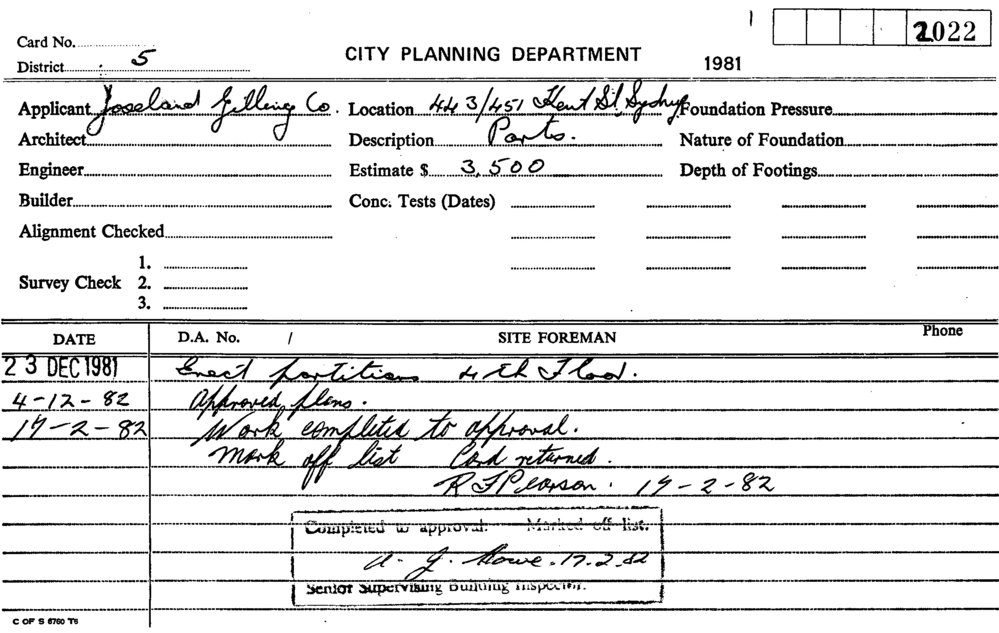 2022
Card No.
District 5
CITY PLANNING DEPARTMENT 1981
Applicant Joseland Gilling Co. Location 443/451 Kent St, Sydney Foundation Pressure
Architect Description Parts. Nature of Foundation
Engineer Estimate $ 3,500 Depth of Footings
Builder Conc. Tests (Dates)
Alignment Checked
1.
Survey Check 2.
3.
DATE D.A. No. / SITE FOREMAN Phone
23 DEC 1981 Erect partitions 4th Floor.
4-12-82 Approved plans.
17-2-82 Work completed to approval.
Mark off list Card returned.
R F Pearson. 17-2-82
Completed to approval. Marked off list.
A. J. Howe. 17.2.82
Senior Supervising Building Inspector.
C OF S 6760 T6